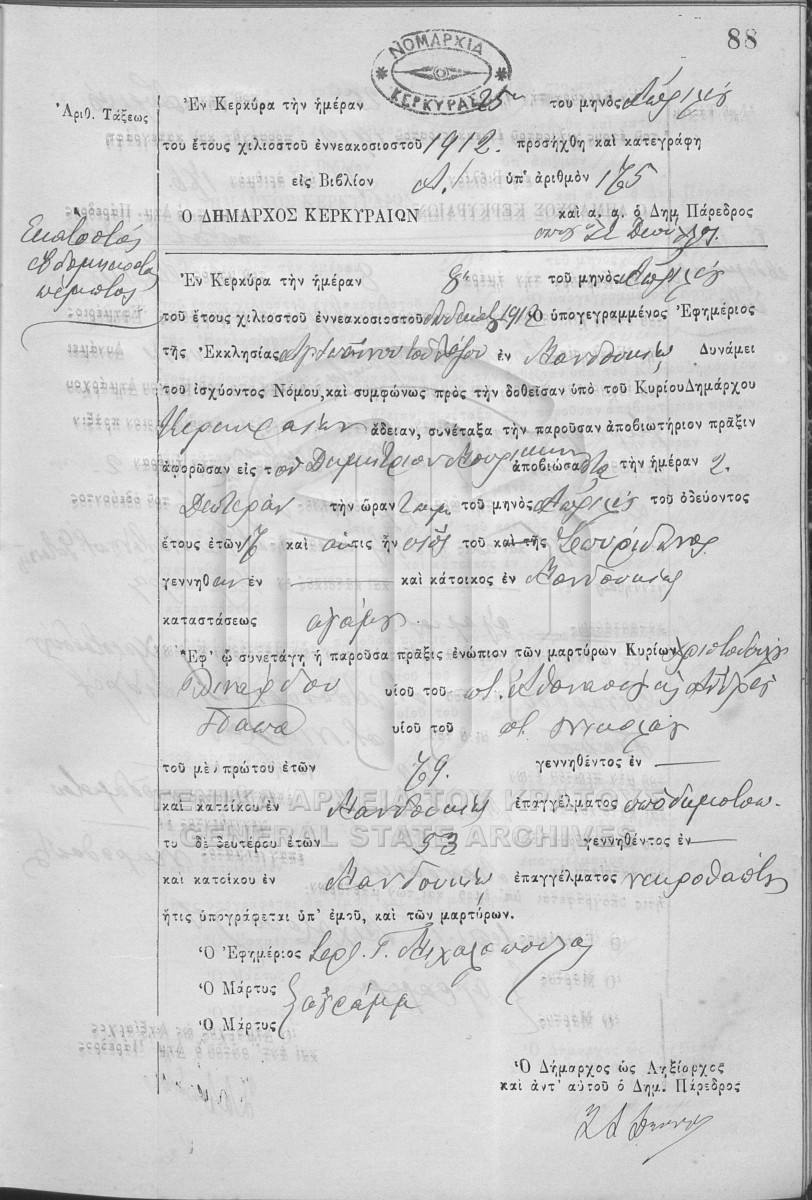 88
ΝΟΜΑΡΧΙΑ
ΚΕΡΚΥΡΑΣ
Ἀριθ. Τάξεως
Ἐν Κερκύρα τὴν ἡμέραν 25 του μηνὸς Ἀπριλίου
του ἔτους χιλιοστοῦ ἐννεακοσιοστοῦ 1912. προσήχθη καὶ κατεγράφη
εἰς Βιβλίον Α! ὑπ' ἀριθμὸν 175
Ο ΔΗΜΑΡΧΟΣ ΚΕΡΚΥΡΑΙΩΝ καὶ ἀ. ἀ. ὁ Δημ. Πάρεδρος
Εκατοστός
εβδομηκοστός
πέμπτος
Ἐν Κερκύρα τὴν ἡμέραν τοῦ μηνὸς Ἀπριλίου
τοῦ ἔτους χιλιοστοῦ ἐννεακοσιοστοῦ δωδεκάτου 1912 Ὁ ὑπογεγραμμένος Ἐφημέριος
τῆς Ἐκκλησίας ἐν Μανδουκίῳ Δυνάμει
τοῦ ἰσχύοντος Νόμου, καὶ συμφώνως πρὸς τὴν δοθεῖσαν ὑπὸ τοῦ Κυρίου Δημάρχου
Κερκυραίων ἄδειαν, συνέταξα τὴν παροῦσαν ἀποβιωτήριον πρᾶξιν
ἀφορῶσαν εἰς τὸν Δημήτριον ἀποβιώσαντα τὴν ἡμέραν 2.
Δευτέραν τὴν ὥραν τοῦ μηνὸς Ἀπριλίου τοῦ ὁδεύοντος
ἔτους ἐτῶν καὶ ὅστις ἦν υἱὸς τοῦ καὶ τῆς Σπυρίδωνος
γεννηθεν ἐν — καὶ κάτοικος ἐν Μανδουκίῳ
καταστάσεως ἀγάμου
Ἐφ' ᾧ συνετάγη ἡ παροῦσα πρᾶξις ἐνώπιον τῶν μαρτύρων Κυρίων Χριστοδούλου
υἱοῦ τοῦ π. Ἀθανασίου καὶ Ἀνδρέα
Παπα υἱοῦ τοῦ π. Νικολάου
τοῦ μὲν πρώτου ἐτῶν 79. γεννηθέντος ἐν —
καὶ κατοίκου ἐν Μανδουκίῳ ἐπαγγέλματος ὑποδηματοπ.
τυ δὲ δευτέρου ἐτῶν 53 γεννηθέντος ἐν —
καὶ κατοίκου ἐν Μανδουκίῳ ἐπαγγέλματος νεκροθάπτου
ἥτις ὑπογράφεται ὑπ' ἐμοῦ, καὶ τῶν μαρτύρων.
Ὁ Ἐφημέριος Γ.
Ὁ Μάρτυς
Ὁ Μάρτυς ἀγράμμ
Ὁ Δήμαρχος ὡς Ληξίαρχος
καὶ ἀντ' αὐτοῦ ὁ Δημ. Πάρεδρος
ΓΕΝΙΚΑ ΑΡΧΕΙΑ ΤΟΥ ΚΡΑΤΟΥΣ
GENERAL STATE ARCHIVES